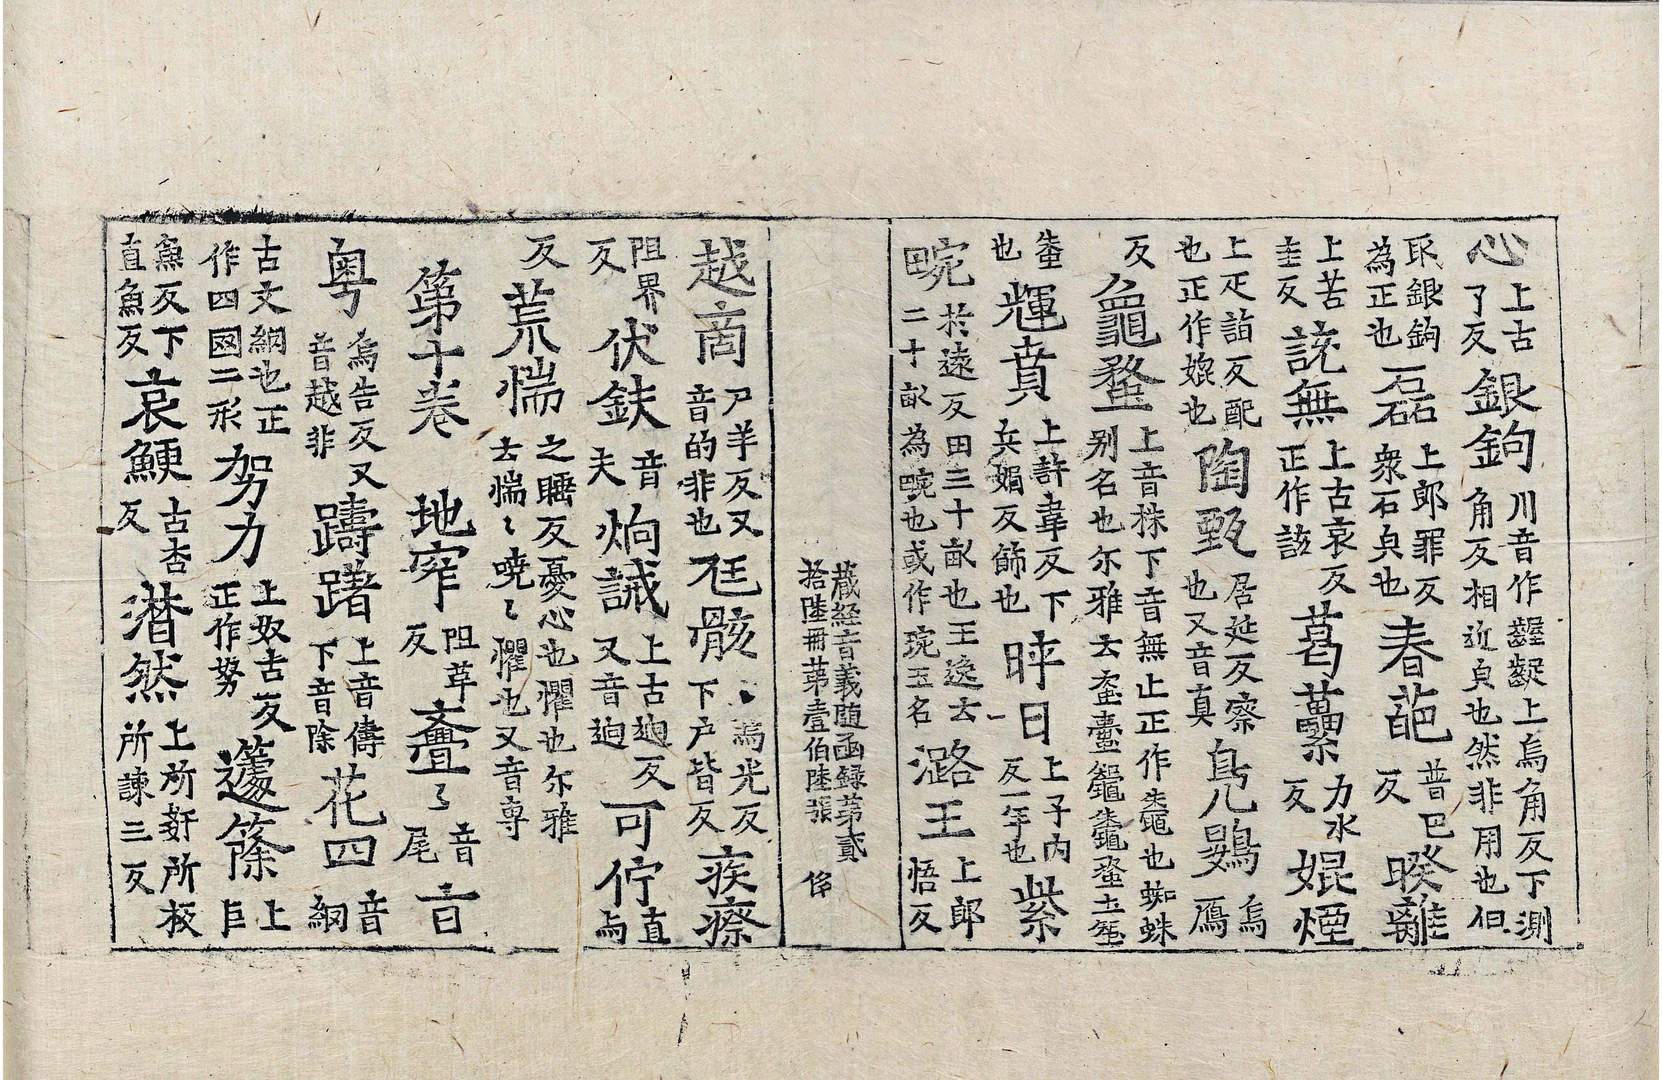 心上古了反銀鉤川音作齷齪上烏角反下測角反相近皃也然非用也但
取銀鉤為正也磊上郎罪反衆石皃也春葩普巴反暌離
上苦圭反䛄無上古哀反正作該葛虆力水反婫煙
上疋詣反配也正作媲也陶甄居延反察也又音真鳧鷖烏鴈
反鼅蝥上音株下音無正作鼄也蜘蛛別名也尒雅云
蚕也輝賁上許韋反下兵媚反飾也晬日上子內反一年也紫
畹於遠反田三十畝也王逸云二十畝為畹也或作琬玉名潞王上郎悟反
藏經音義隨函錄第貳拾陸冊第壹伯陸張
越商尸羊反又音的非也尫骸烏光反下戶皆反疾瘵
阻界反伏鈇音夫炯誡上古迥反又音迥可佇直与
反荒惴之睡反憂心也懼也尒雅云惴〻嘵〻懼也又音專
第十卷 地窄阻革反亹〻音尾言
粤烏告反又音越非躊躇上音儔下音除花四音網
古文網也正作四𦉪二形努力上奴古反正作努籧篨上巨
魚反下直魚反哀鯁古杏反潸然上所姧所板所諫三反